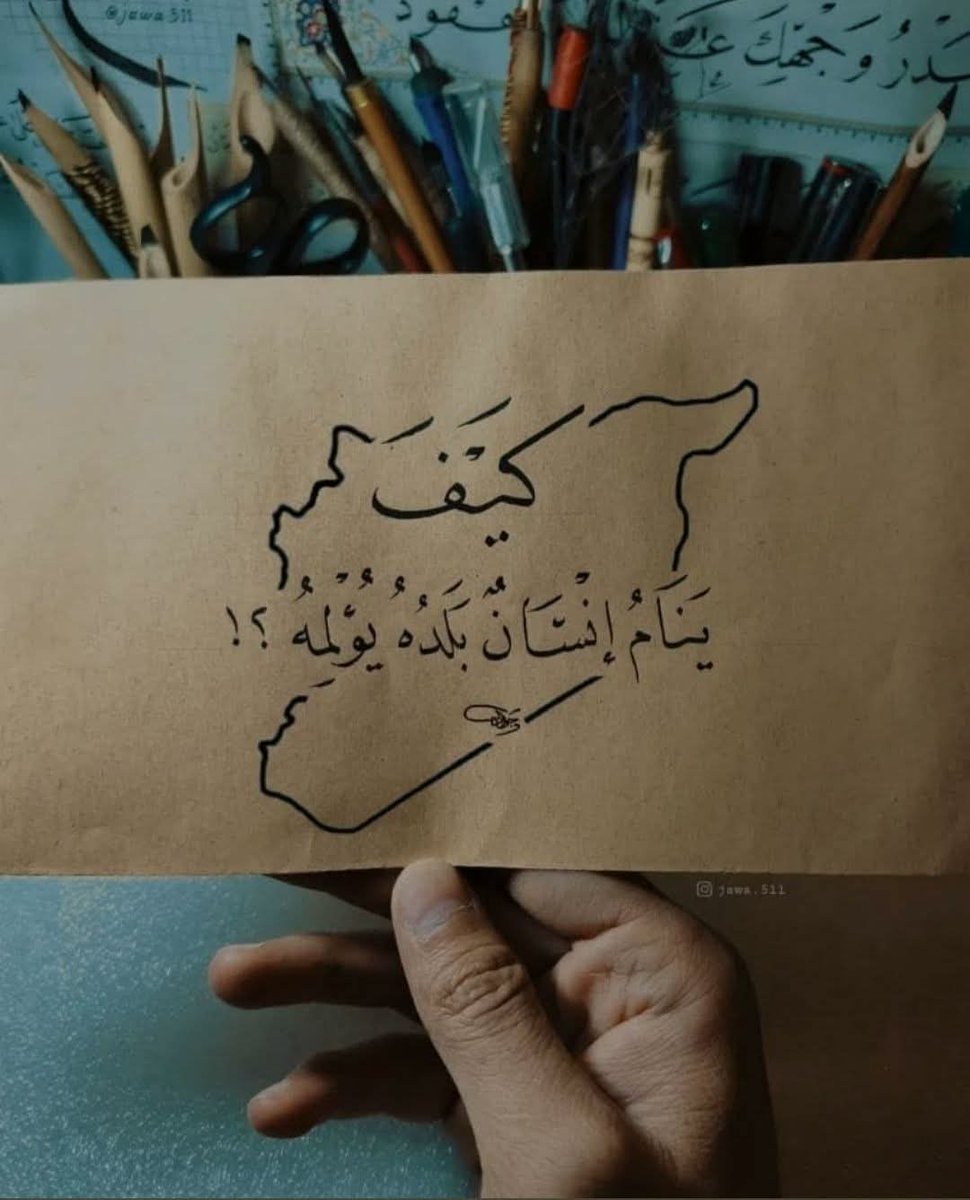 @jawa.511
بَدْرُ وَجْهِكِ
كَيْفَ
يَنَامُ إِنْسَانٌ بَلَدُهُ يُؤْلِمُهُ ؟!
jawa.511